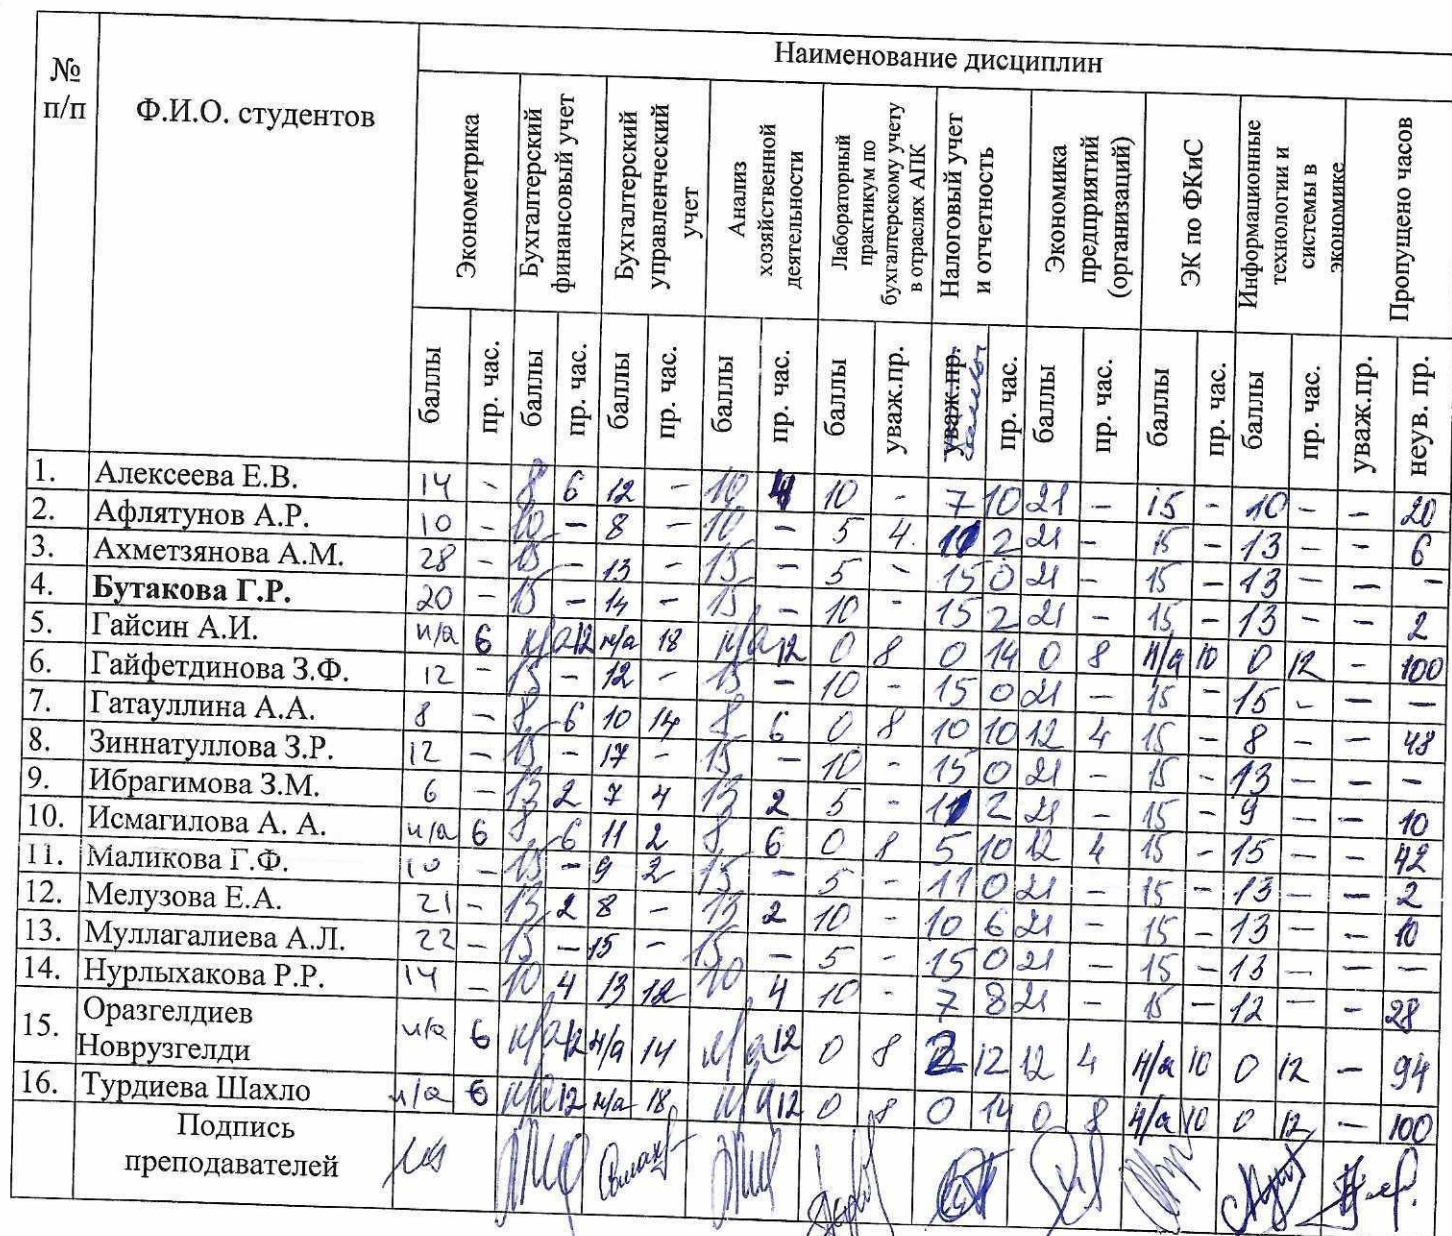 Наименование дисциплин
№ п/п
Ф.И.О. студентов
Эконометрика
Бухгалтерский финансовый учет
Бухгалтерский управленческий учет
Анализ хозяйственной деятельности
Лабораторный практикум по бухгалтерскому учету в отраслях АПК
Налоговый учет и отчетность
Экономика предприятий (организаций)
ЭК по ФКиС
Информационные технологии и системы в экономике
Пропущено часов
баллы пр. час. баллы пр. час. баллы пр. час. баллы пр. час. баллы уваж.пр. уваж.пр. баллы пр. час. баллы пр. час. баллы пр. час. баллы пр. час. уваж.пр. неув. пр.
1. Алексеева Е.В. 14 - 8 6 12 - 10 4 10 - 7 10 21 - 15 - 10 - - 20
2. Афлятунов А.Р. 10 - 10 - 8 - 10 - 5 4. 10 2 21 - 15 - 13 - - 6
3. Ахметзянова А.М. 28 - 15 - 13 - 15 - 5 - 15 0 21 - 15 - 13 - - -
4. Бутакова Г.Р. 20 - 15 - 14 - 15 - 10 - 15 2 21 - 15 - 13 - - 2
5. Гайсин А.И. н/а 6 н/а 12 н/а 18 н/а 12 0 8 0 14 0 8 н/а 10 0 12 - 100
6. Гайфетдинова З.Ф. 12 - 15 - 12 - 15 - 10 - 15 0 21 - 15 - 15 - - -
7. Гатауллина А.А. 8 - 8 6 10 14 8 6 0 8 10 10 12 4 15 - 8 - - 48
8. Зиннатуллова З.Р. 12 - 15 - 17 - 15 - 10 - 15 0 21 - 15 - 13 - - -
9. Ибрагимова З.М. 6 - 13 2 7 4 13 2 5 - 11 2 21 - 15 - 9 - - 10
10. Исмагилова А. А. н/а 6 8 6 11 2 8 6 0 8 5 10 12 4 15 - 15 - - 42
11. Маликова Г.Ф. 10 - 15 - 9 2 15 - 5 - 11 0 21 - 15 - 13 - - 2
12. Мелузова Е.А. 21 - 13 2 8 - 13 2 10 - 10 6 21 - 15 - 13 - - 10
13. Муллагалиева А.Л. 22 - 15 - 15 - 15 - 5 - 15 0 21 - 15 - 13 - - -
14. Нурлыхакова Р.Р. 14 - 10 4 13 12 10 4 10 - 7 8 21 - 15 - 12 - - 28
15. Оразгелдиев
Новрузгелди н/а 6 н/а 12 н/а 14 н/а 12 0 8 2 12 12 4 н/а 10 0 12 - 94
16. Турдиева Шахло н/а 6 н/а 12 н/а 18 н/а 12 0 8 0 14 0 8 н/а 10 0 12 - 100
Подпись
преподавателей